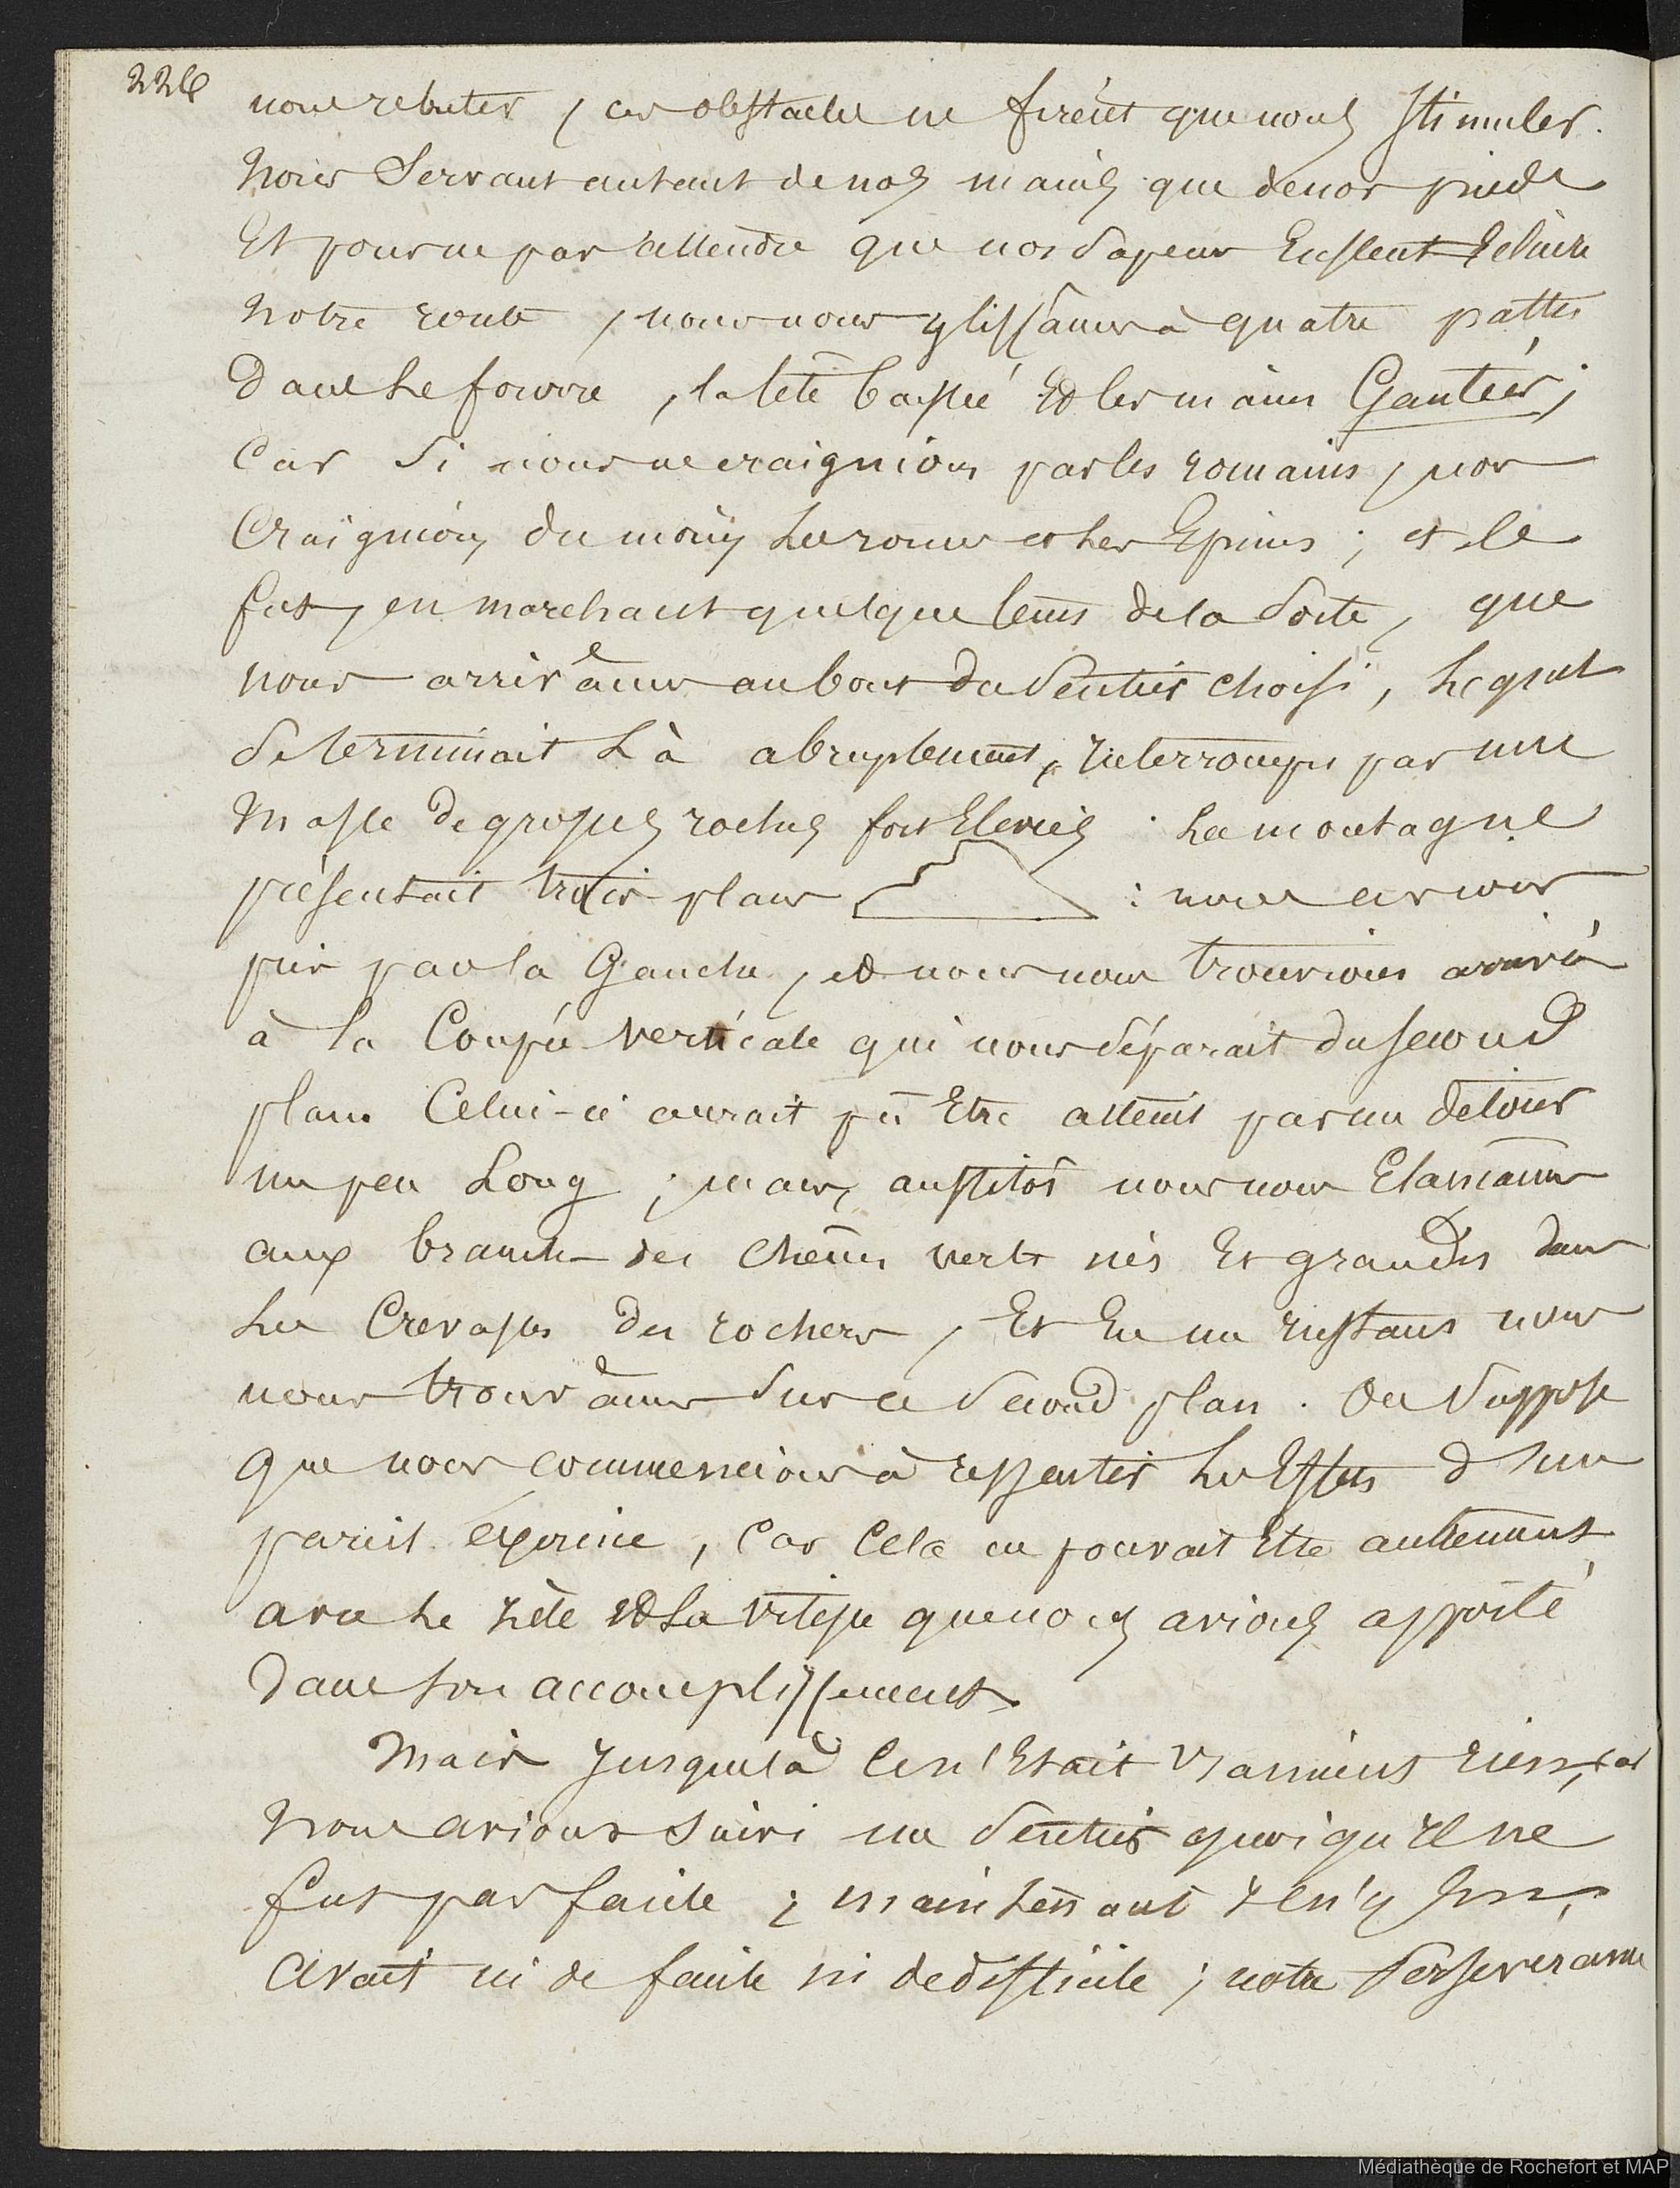 226
nous rebuter, ces obstacles ne firent que nous stimuler.
Nous servant autant de nos mains que de nos pieds
Et pour ne pas attendre que nos sapeurs Eussent Eclairé
Notre route, nous nous glissâmes à quatre pattes
Dans le fourré, la tête baissée Et les mains Gantées;
Car si nous ne craignions pas les romains, nos
Craignions du moins les ronces et les Epines; et ce
fut, en marchant quelque tems de la sorte, que
nous arrivâmes au bout du sentier choisi, lequel
se terminait là abruptement, interrompu par une
Masse de grosses roches fort Elevées. La montagne
présentait trois plans : nous avions
pris par la Gauche, et nous nous trouvions arrivés
à la Coupée verticale qui nous séparait du second
plan. Celui-ci aurait pû Etre atteint par un détour
un peu Long; mais, aussitôt nous nous Elançâmes
aux branches des chênes verts nés Et grandis dans
les Crevasses des rochers, Et En un instant nous
nous trouvâmes sur ce second plan. On suppose
que nous commencions à ressentir les Effets d'un
pareil exercice, Car Cela ne pouvait Etre autrement
avec le zèle Et la vitesse que nous avions apporté
Dans son accomplissement.
Mais jusque là Ce n'Etait vraiment rien, car
Nous avions suivi un sentier quoiqu'il ne
fut pas facile; maintenant il n'y
avait ni de facile ni de difficile; notre Persévérance
Médiathèque de Rochefort et MAP